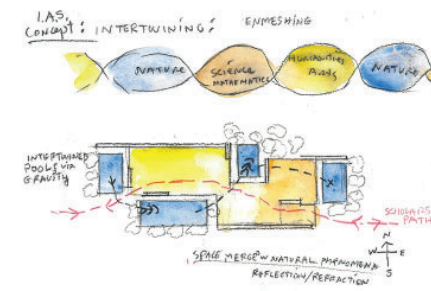 I.A.S.
CONCEPT: INTERTWINING: ENMESHING
NATURE
SCIENCE
MATHEMATICS
HUMANITIES
ARTS
NATURE
INTERTWINED
POOLS VIA
GRAVITY
SCHOLARS
PATH
SPACE MERGE W NATURAL PHENOMENA
REFLECTION/REFRACTION
N
W E
S